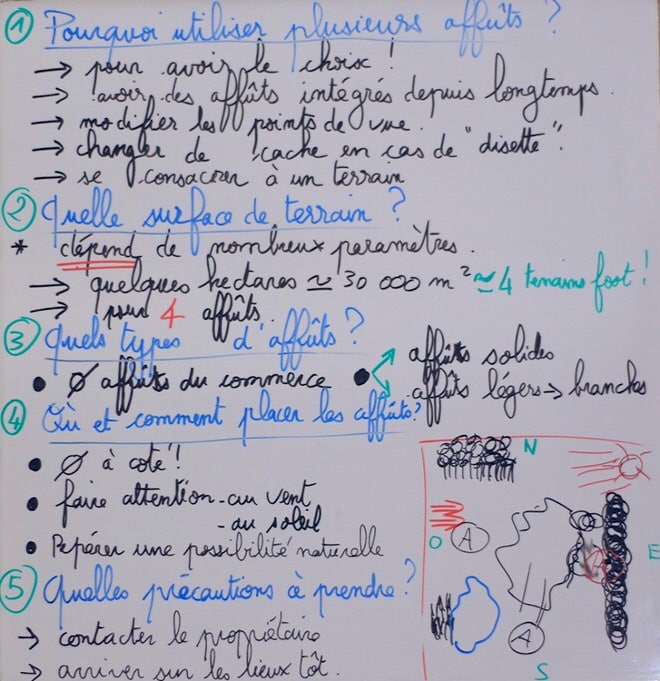 ① Pourquoi utiliser plusieurs affûts ?
→ pour avoir le choix !
→ avoir des affûts intégrés depuis longtemps.
→ modifier les points de vue.
→ changer de cache en cas de "disette".
→ se consacrer à un terrain
② Quelle surface de terrain ?
* dépend de nombreux paramètres.
→ quelques hectares ≃ 30 000 m² ≃ 4 terrains foot !
→ pour 4 affûts.
③ Quels types d'affûts ?
• Ø affûts du commerce • affûts solides
affûts légers → branches
④ Où et comment placer les affûts ?
• Ø à coté !
• faire attention - au vent
- au soleil
• Repérer une possibilité naturelle
⑤ Quelles précautions à prendre ?
→ contacter le propriétaire
→ arriver sur les lieux tôt.
N
O A A E
A
S